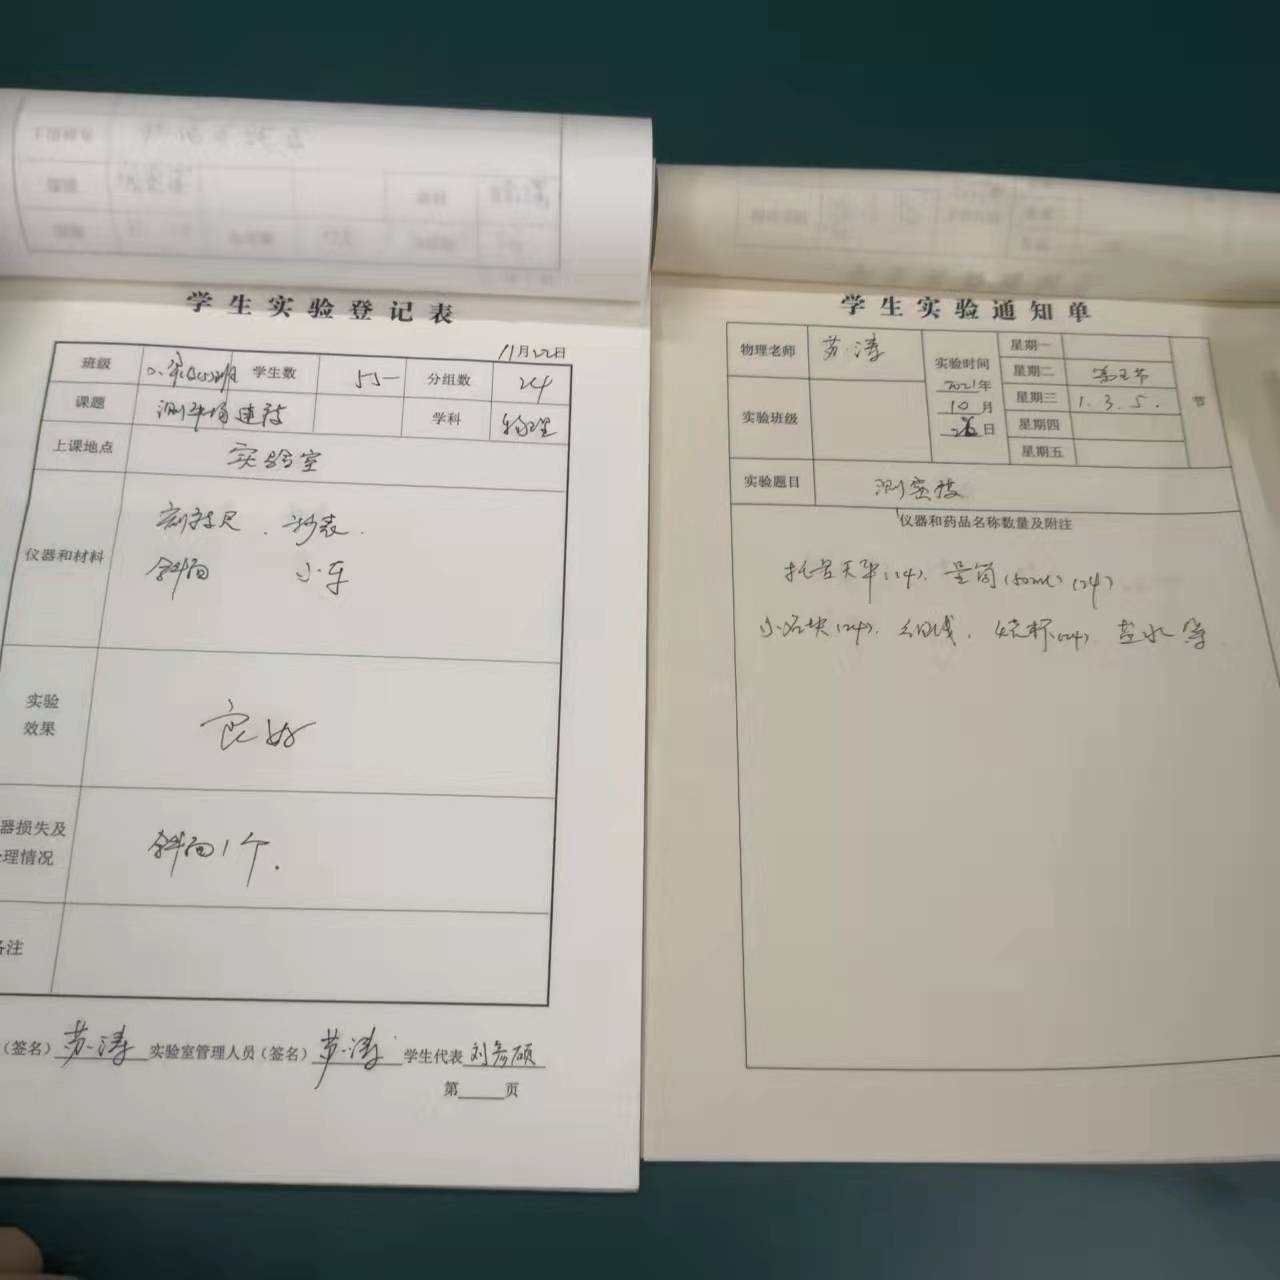 学生实验登记表
11月22日
班级 学生数 55 分组数 24
课题 测平均速度 学科 物理
上课地点 实验室
仪器和材料 刻度尺、秒表.
斜面 小车
实验
效果 良好
器损失及
理情况 斜面1个.
备注
(签名)苏涛 实验室管理人员(签名)苏涛 学生代表
第 页
学生实验通知单
物理老师 苏涛 实验时间 2021年10月 日 星期一
星期二
星期三 1.3.5. 节
实验班级 星期四
星期五
实验题目 测密度
仪器和药品名称数量及附注
托盘天平(24)、量筒(50ml)(24)
小石块(24)、细线、烧杯(24) 盐水等